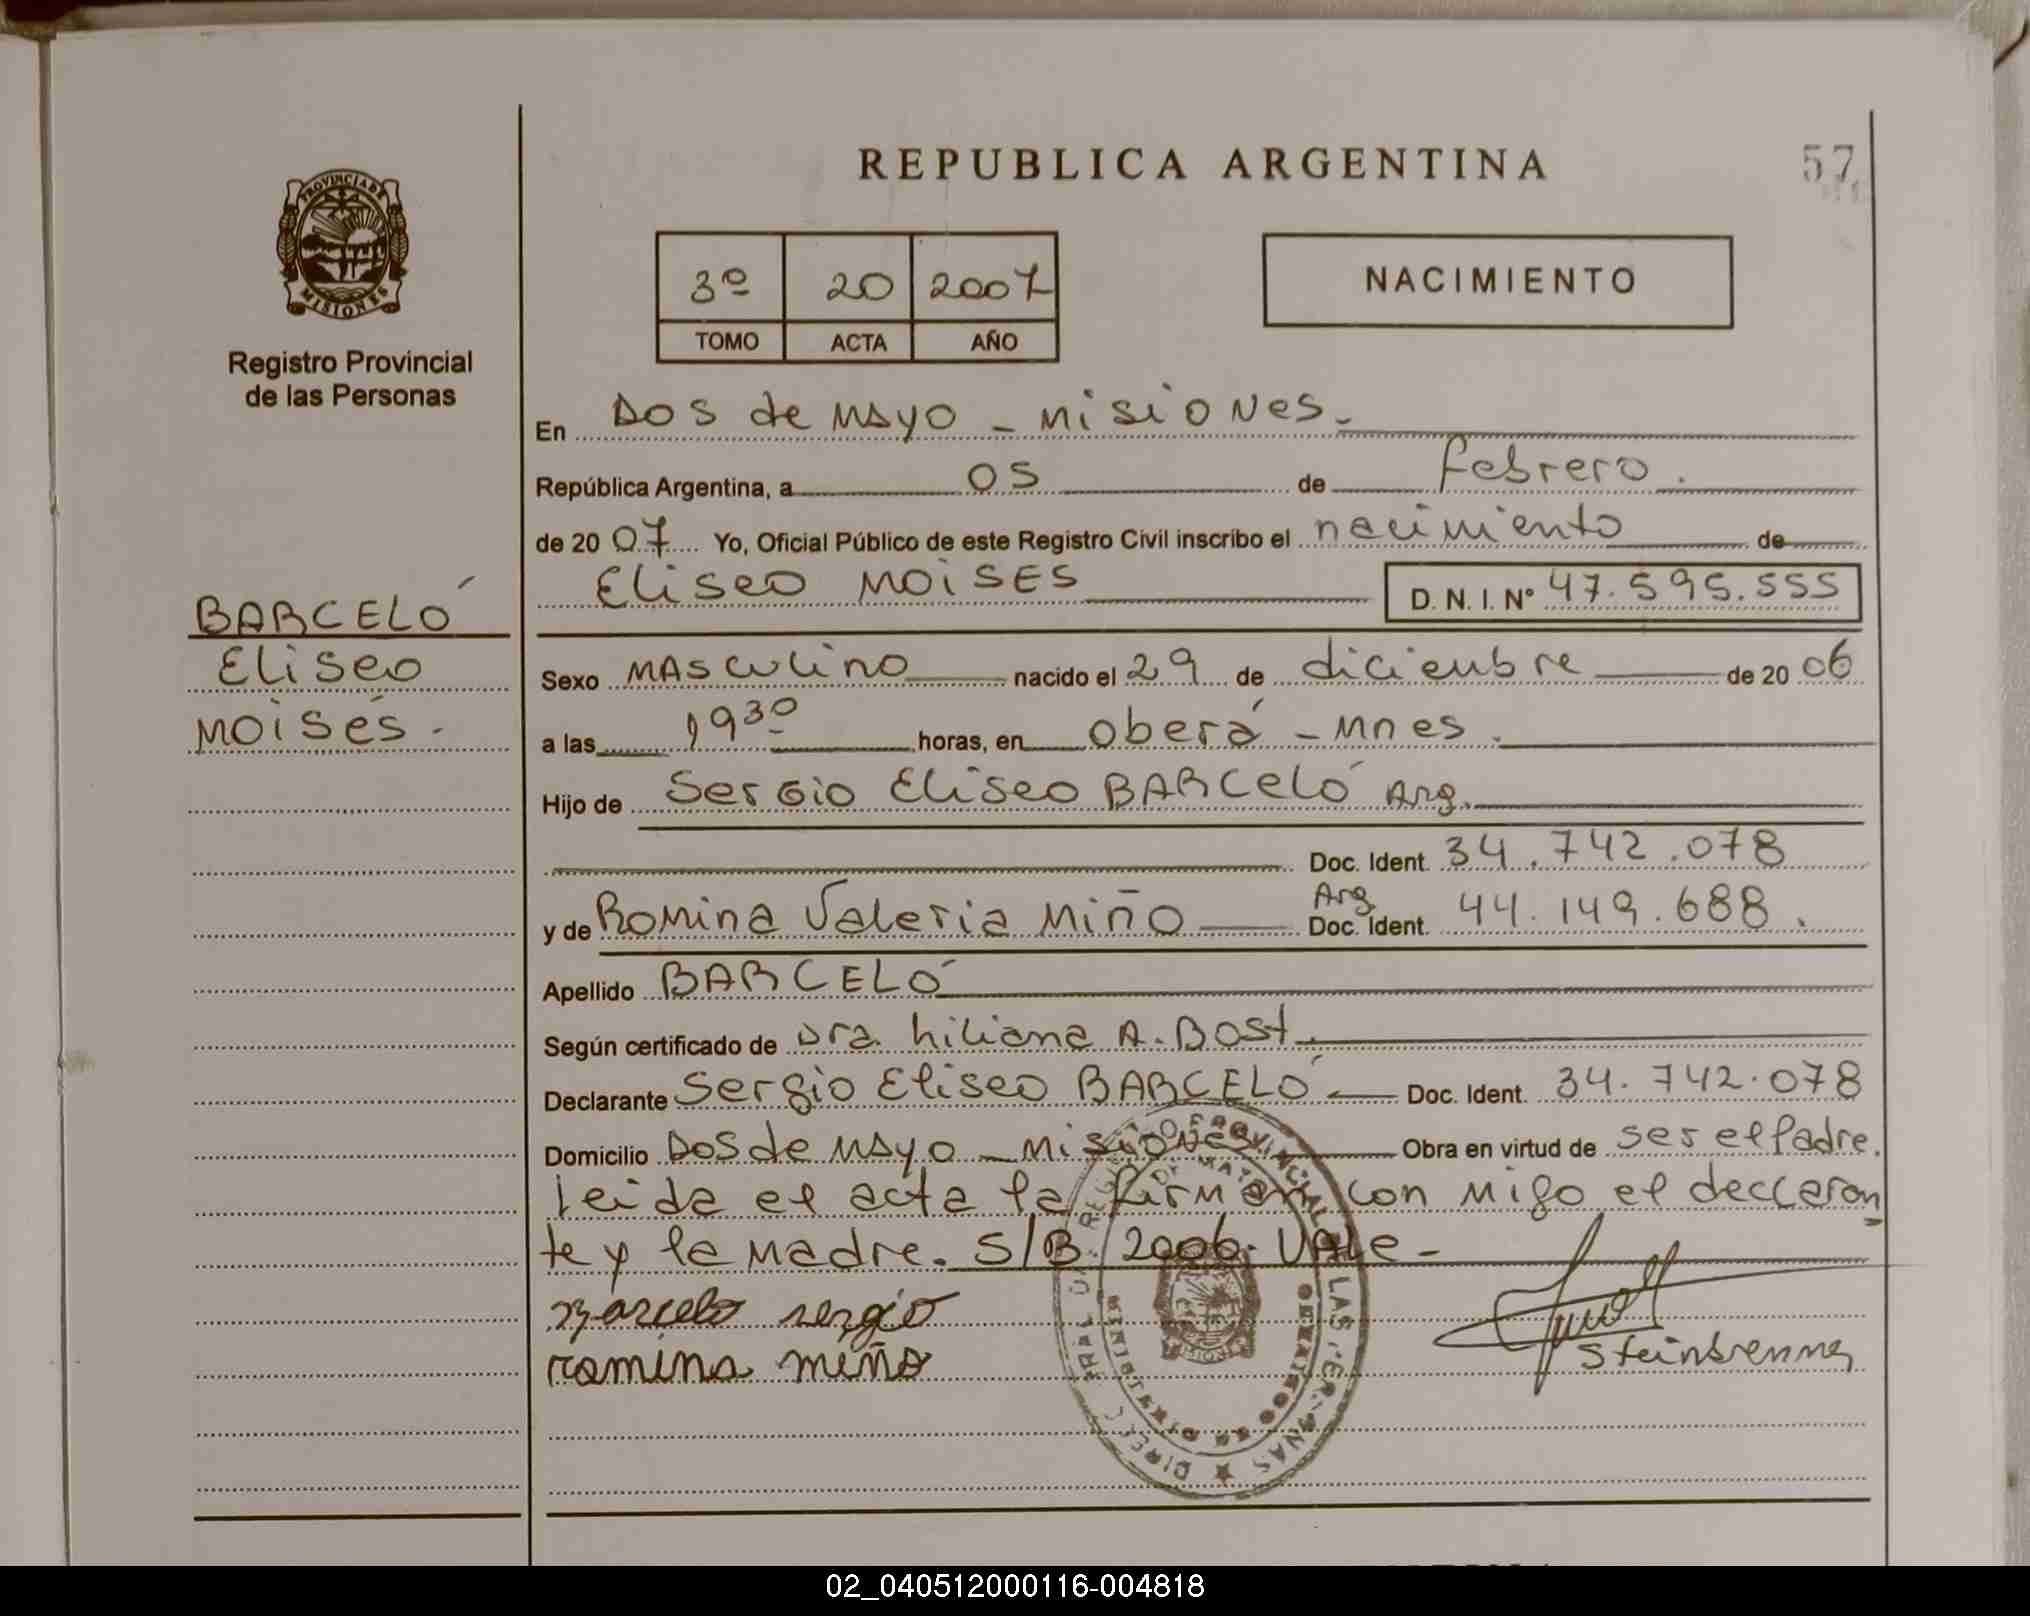 REPUBLICA ARGENTINA
57
PROVINCIA DE
MISIONES
Registro Provincial
de las Personas
3º 20 2007
TOMO ACTA AÑO
NACIMIENTO
En Dos de Mayo - Misiones.
República Argentina, a 05 de febrero.
de 2007. Yo, Oficial Público de este Registro Civil inscribo el nacimiento de
Eliseo Moises D. N. I. Nº 47.595.555
BARCELÓ
Eliseo
Moisés.
Sexo Masculino nacido el 29 de diciembre de 2006
a las 19 30 horas, en Oberá - Mnes.
Hijo de Sergio Eliseo BARCELÓ Arg.
Doc. Ident. 34.742.078
y de Romina Valeria Miño Arg Doc. Ident. 44.149.688.
Apellido BARCELÓ
Según certificado de Dra. Liliana A. Bost.
Declarante Sergio Eliseo BARCELÓ Doc. Ident. 34.742.078
Domicilio Dos de Mayo - Misiones Obra en virtud de ser el Padre.
Leida el acta la firman con migo el declaran
te y la Madre. S/B 2006. Vale-
Barcelo sergio
romina miño
Steinbrenner
02_040512000116-004818